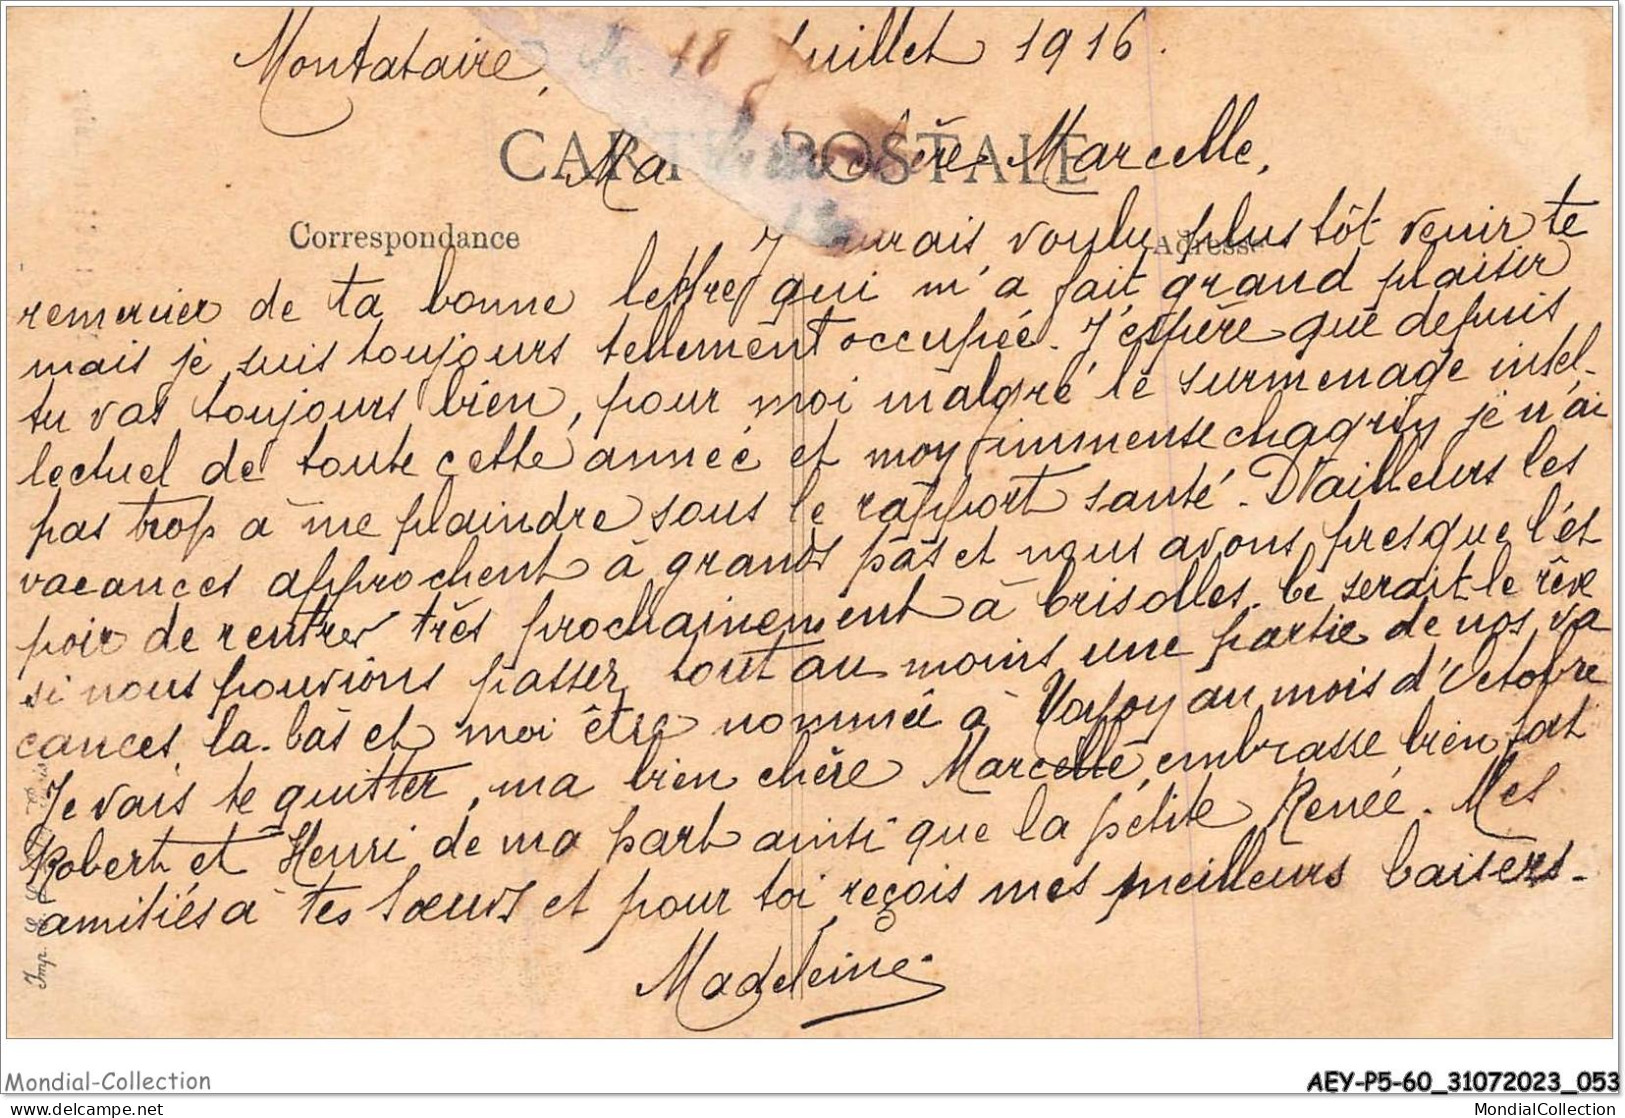 Montataire, le 18 Juillet 1916.
CARTE POSTALE
Ma chère Marcelle,
Correspondance
Adresse
J'aurais voulu plus tôt venir te
remercier de ta bonne lettre qui m'a fait grand plaisir
mais je suis toujours tellement occupée. J'espère que depuis
tu vas toujours bien, pour moi malgré le surmenage intel-
lectuel de toute cette année et mon immense chagrin je n'ai
pas trop à me plaindre sous le rapport santé. D'ailleurs les
vacances approchent à grands pas et nous avons presque l'es
poir de rentrer très prochainement à Crisolles. Ce serait le rêve
si nous pouvions passer tout au moins une partie de nos va
cances là-bas et moi être nommée à au mois d'Octobre
Je vais te quitter, ma bien chère Marcelle, embrasse bien fort
Robert et Henri de ma part ainsi que la petite Renée. Mes
amitiés à tes Sœurs et pour toi reçois mes meilleurs baisers.
Madeleine
Imp.
Mondial-Collection
AEY-P5-60_31072023_053
delcampe.net
MondialCollection